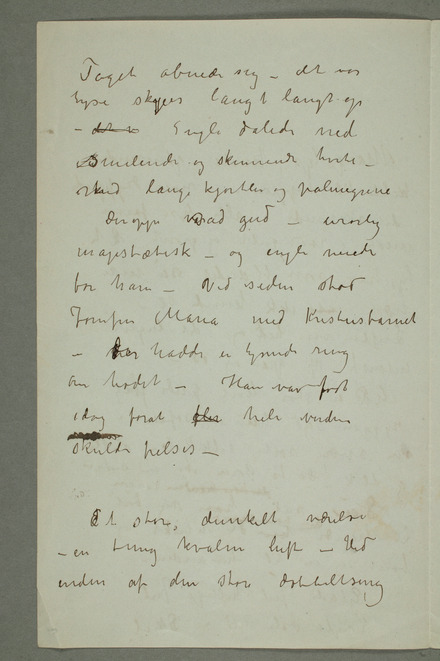 Taget åbnede seg – det var
lyse skyer langt langt op
– Engle dalede ned
Smilende og skinnende hvite –
med lange kjortler og palmegrene
Deroppe sad gud – urørlig
majestætisk – og engle
for ham – Ved siden stod
Jomfru Maria med Kristusbarnet
– hadde en lysende ring
om hodet – Han var født
idag forat hele verden
skulde frelses –
Et stort, dunkelt værelse
– en tung kvalm luft – Ved
enden af den store dobbeltseng